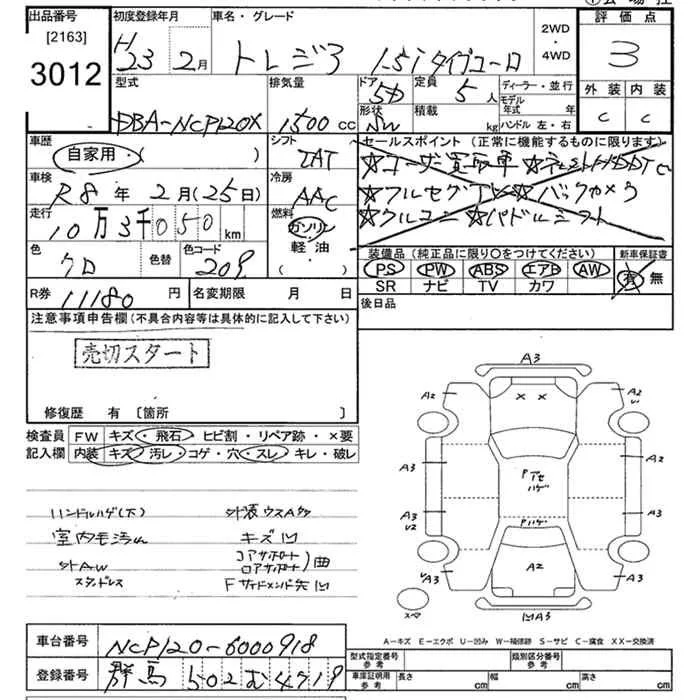 出品番号 初度登録年月 車名・グレード 2WD・4WD 評価点
[2163]
3012 H23 2月 トレジア 1.5iタイプユーロ 3
型式 排気量 ドア 定員 ディーラー・並行 外装 内装
DBA-NCP120X 1500 cc 5D 5人 モデル年式 年 C C
形状 積載 kg ハンドル 左・右
車歴 シフト セールスポイント(正常に機能するものに限ります)
自家用・( ) IAT ☆ユーザー買取車
車検 冷房 ☆フルセグTV ☆バックカメラ
R8年2月(25日) AAC ☆クルコン ☆パドルシフト
走行 燃料
10万3千050km ガソリン
軽油
・( )
色 色替 色コード 装備品(純正品に限り○をつけてください) 新車保証書
クロ 209 PS PW ABS エアB AW 有 無
SR ナビ TV カワ
R券 11180円 名変期限 月 日 後日品
注意事項申告欄(不具合内容等は具体的に記入して下さい)
売切スタート
修復歴 有 [箇所 ]
検査員 FW キズ・飛石・ヒビ割・リペア跡・×要
記入欄 内装 キズ・汚レ・コゲ・穴・スレ・キレ・破レ
ハンドルハゲ(大) 外装ウスA多
室内毛汚れ キズ凹
社外AW コアサポート
スタッドレス ロアサポート)曲
Fサイドメンバ先凹
A3
A2 × × A2
U1
A3 Pアセ
ハゲ
A3 Pハゲ A3
U2
A2
A3 A3
スペア 凹A3
A-キズ E-エクボ U-凹み W-補修跡 S-サビ C-腐食 XX-交換済
車台番号 NCP120-6000918 型式指定番号 参考 類別区分番号 参考
登録番号 群馬 502 む 4719 車庫証明用 参考 長さ cm 幅 cm 高さ cm